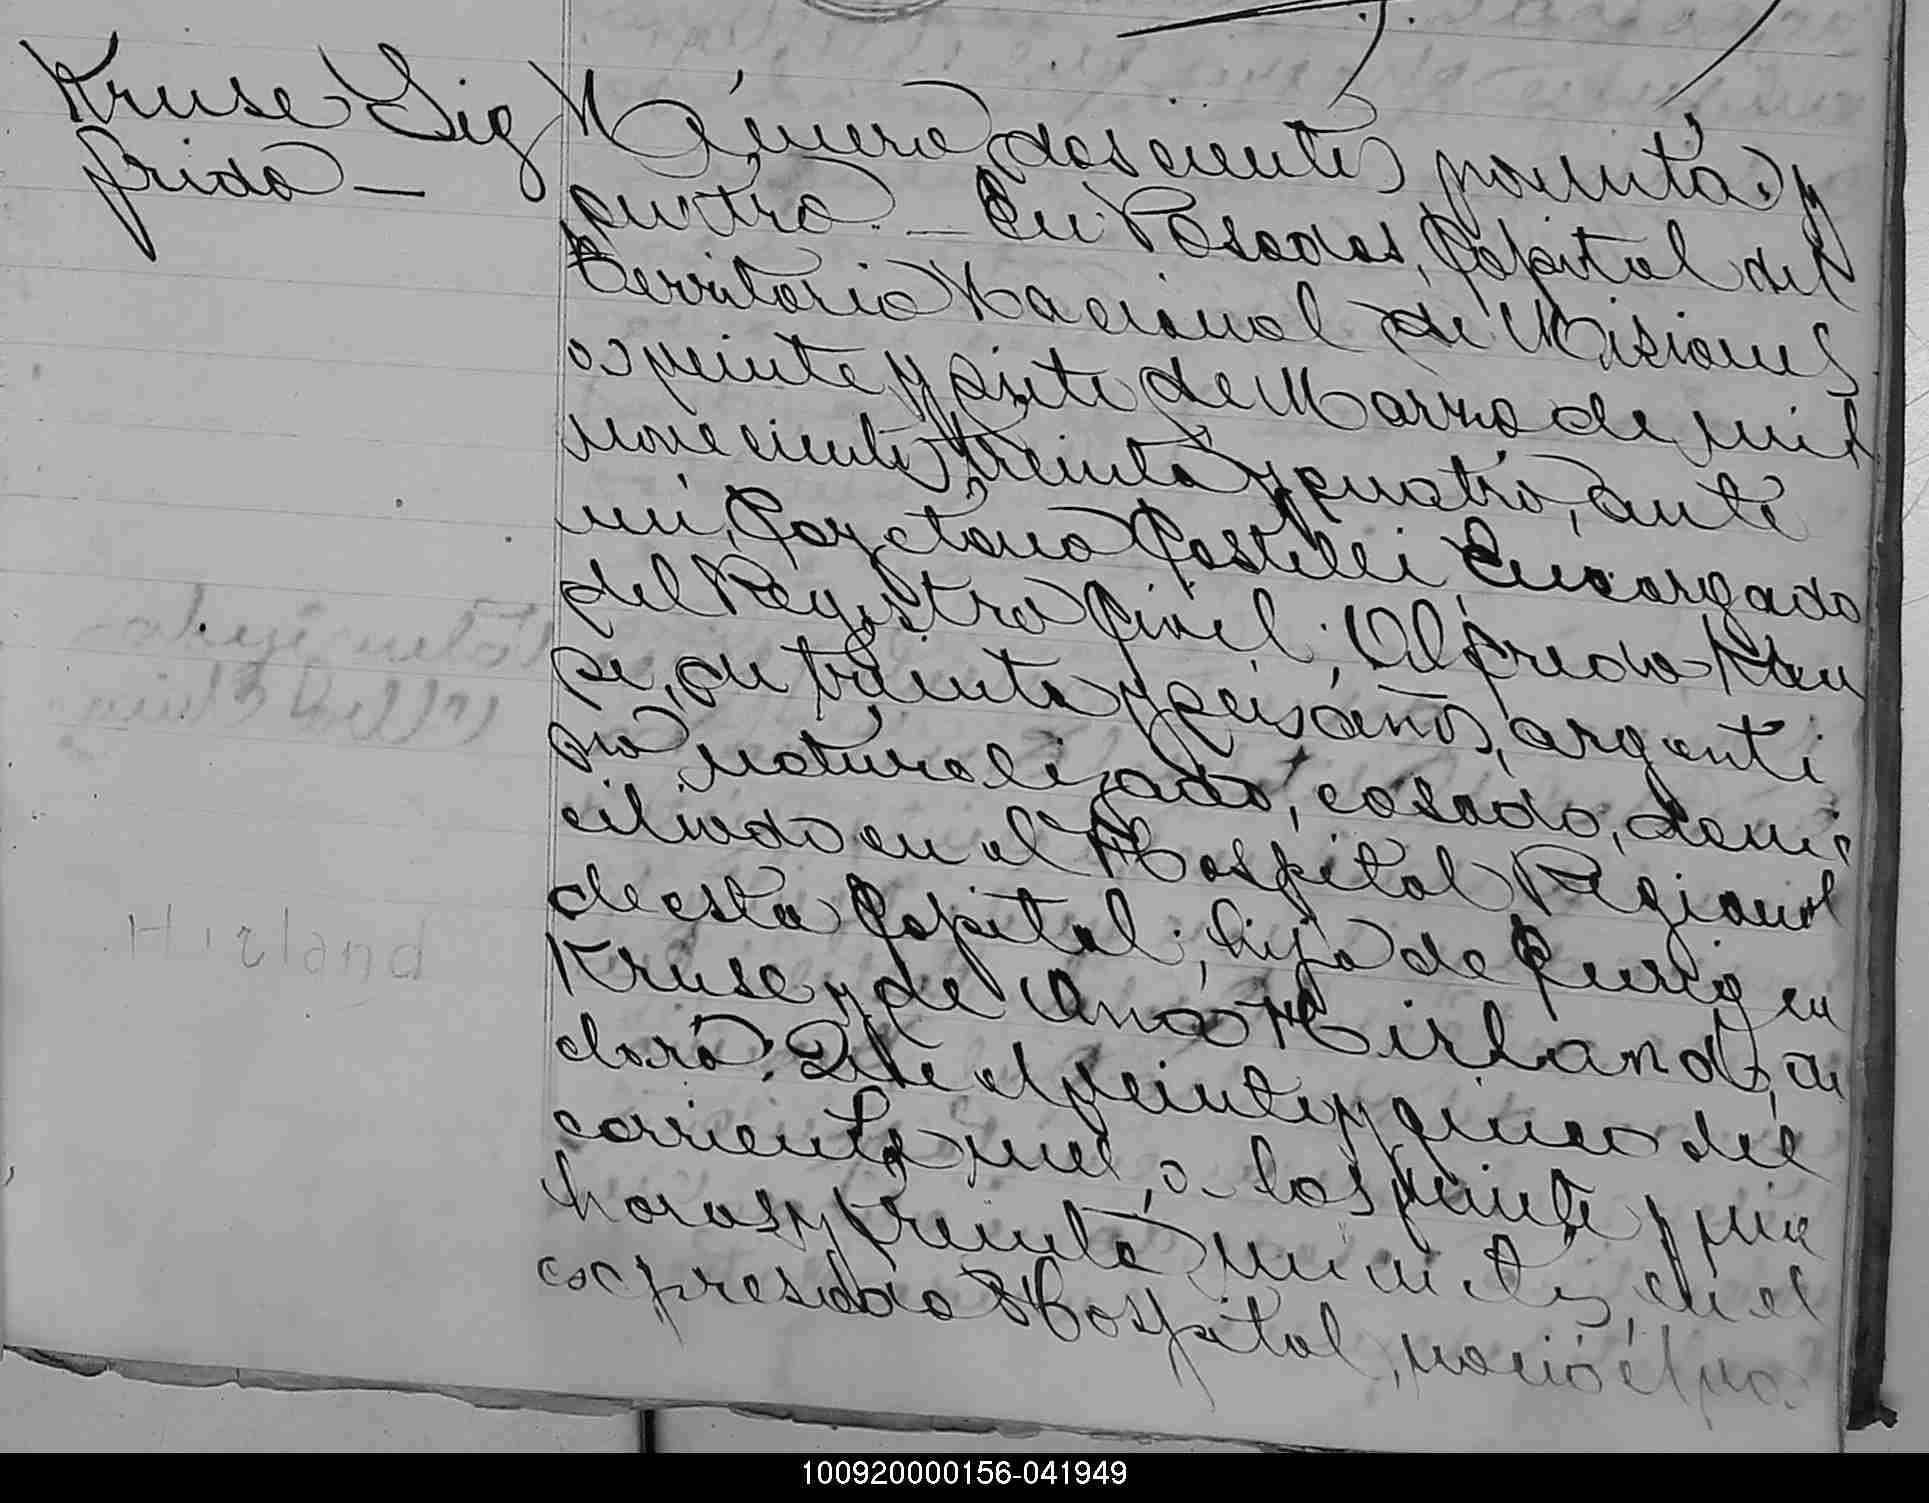 Kruse Sig
frido —
Número doscientos noventa y
cuatro. — En Posadas, Capital del
Territorio Nacional de Misiones
a veinte y siete de Marzo de mil
novecientos treinta y cuatro, ante
mi, Cayetano Castelli Encargado
del Registro Civil; Alfredo Kru
se, de treinta y seis años, argenti
no naturalizado, casado, domi
ciliado en el Hospital Regional
de esta Capital; hijo de
Kruse y de Ana Hirland, de
claró: Que el veinte y cinco del
corriente mes, a las veinte y una
horas y treinta minutos, en el
expresado Hospital, nació el va
Hirland
100920000156-041949